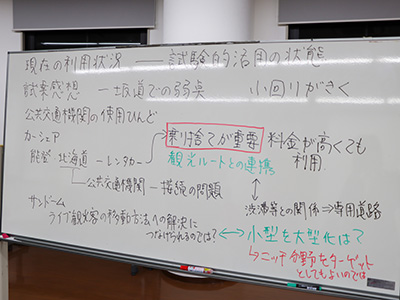 現在の利用状況 ― 試験的活用の状態
試乗感想 ― 坂道での弱点 小回りがきく
公共交通機関の使用ひんど
カーシェア
乗り捨てが重要 料金が高くても利用
能登・北海道 ― レンタカー
観光ルートとの連携
公共交通機関 ― 接続の問題
↕
渋滞等との関係⇒専用道路
サンドーム
ライブ観光客の移動方法への解決に
つなげられるのでは? ↔ 小型を大型化は?
↳ニッチ分野をターゲット
としてもよいのでは